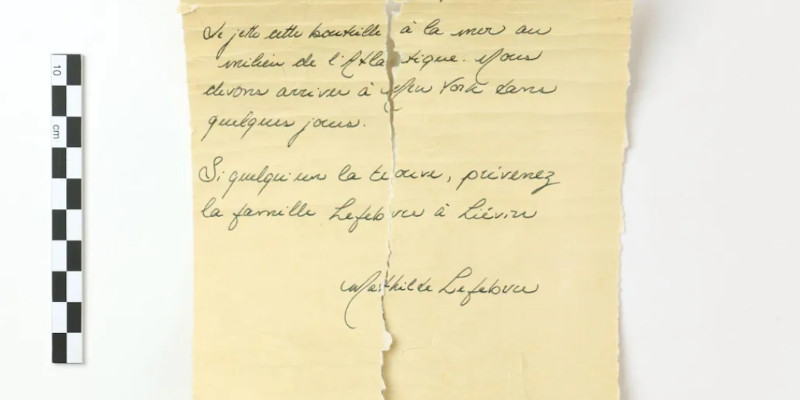 Je jette cette bouteille à la mer au
milieu de l'Atlantique. Nous
devons arriver à New York dans
quelques jours.
Si quelqu'un la trouve, prévenez
la famille Lefebvre à Liévin
Mathilde Lefebvre
10
cm